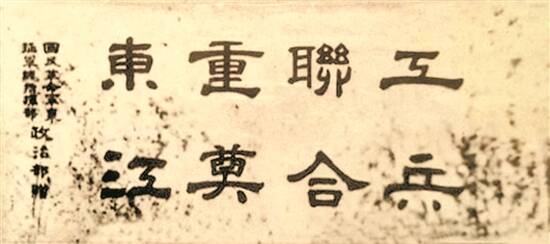 工兵
聯合
重莫
東江
國民革命軍東
征軍總指揮部
政治部贈